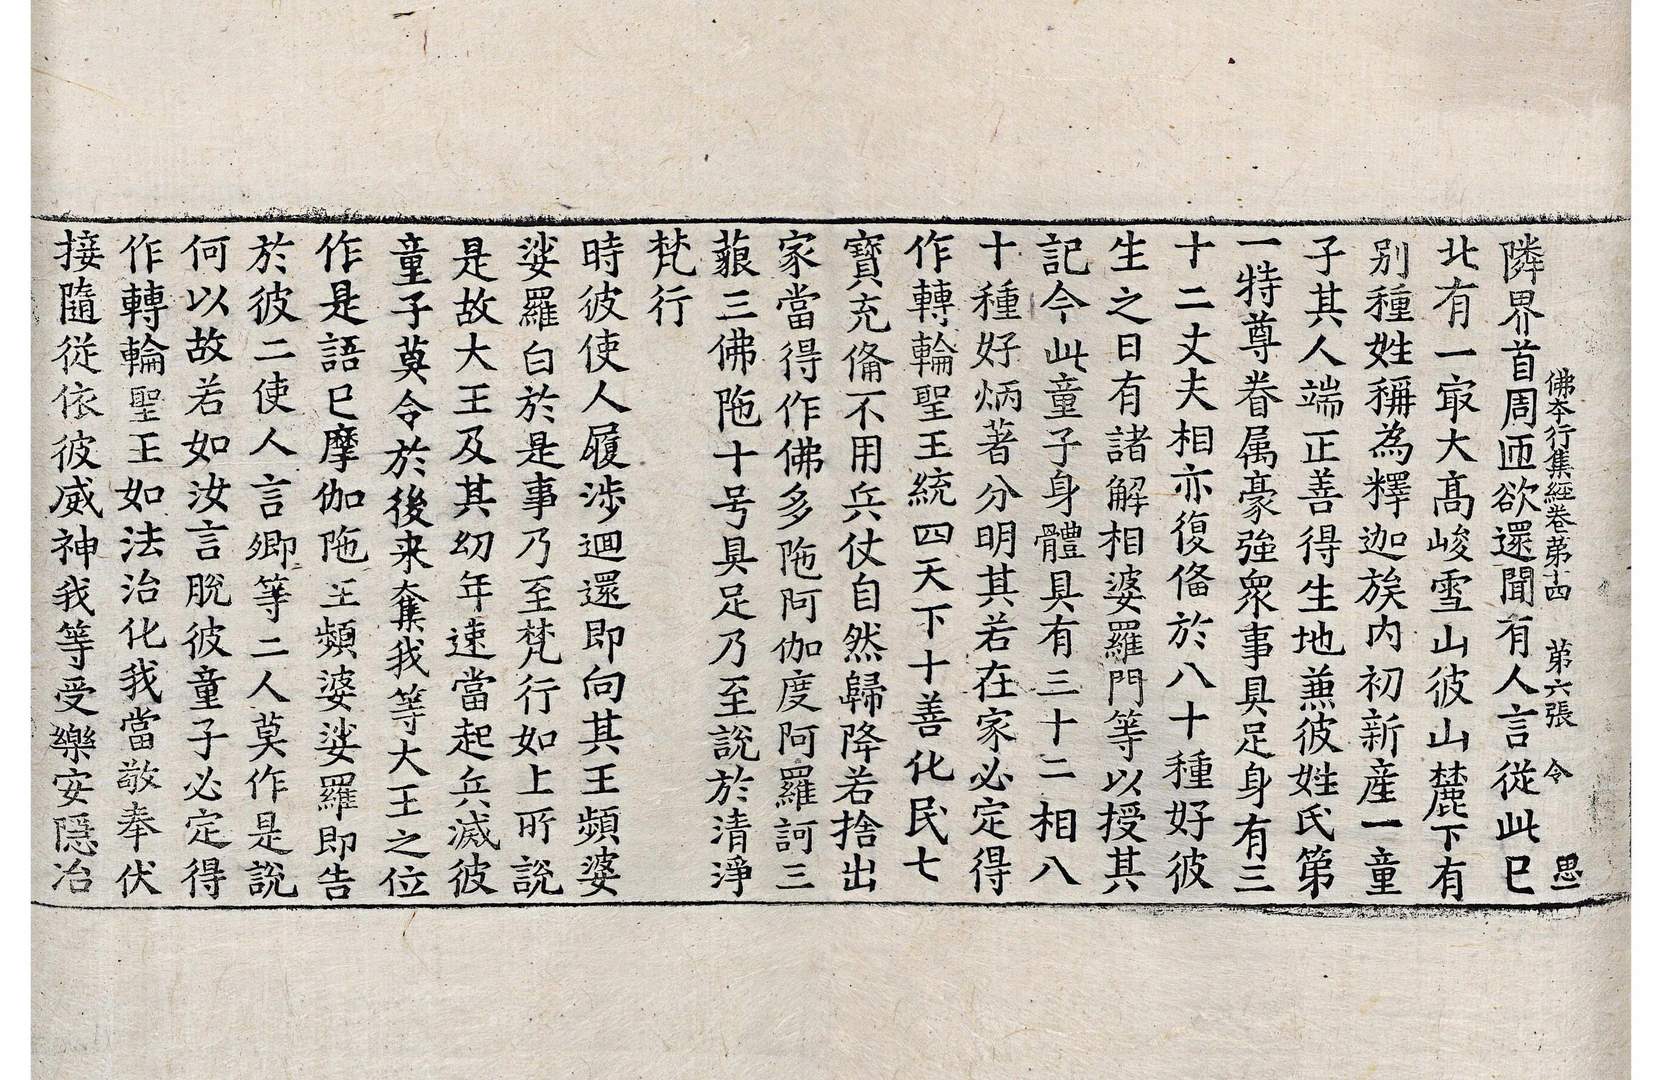 佛本行集經卷第十四　第六張　令　思
隣界首周匝欲還聞有人言從此已
北有一㝡大髙峻雪山彼山麓下有
别種姓稱為釋迦族内初新産一童
子其人端正善得生地兼彼姓氏第
一特尊眷属豪強衆事具足身有三
十二丈夫相亦復俻於八十種好彼
生之日有諸解相婆羅門等以授其
記今此童子身體具有三十二相八
十種好炳著分明其若在家必定得
作轉輪聖王統四天下十善化民七
寶充俻不用兵仗自然歸降若捨出
家當得作佛多陁阿伽度阿羅訶三
藐三佛陁十号具足乃至說於清淨
梵行
時彼使人履涉迴還即向其王頻婆
娑羅白於是事乃至梵行如上所說
是故大王及其幼年速當起兵滅彼
童子莫令於後来奪我等大王之位
作是語已摩伽陁王頻婆娑羅即告
於彼二使人言卿等二人莫作是說
何以故若如汝言脫彼童子必定得
作轉輪聖王如法治化我當敬奉伏
接隨從依彼威神我等受樂安隱治